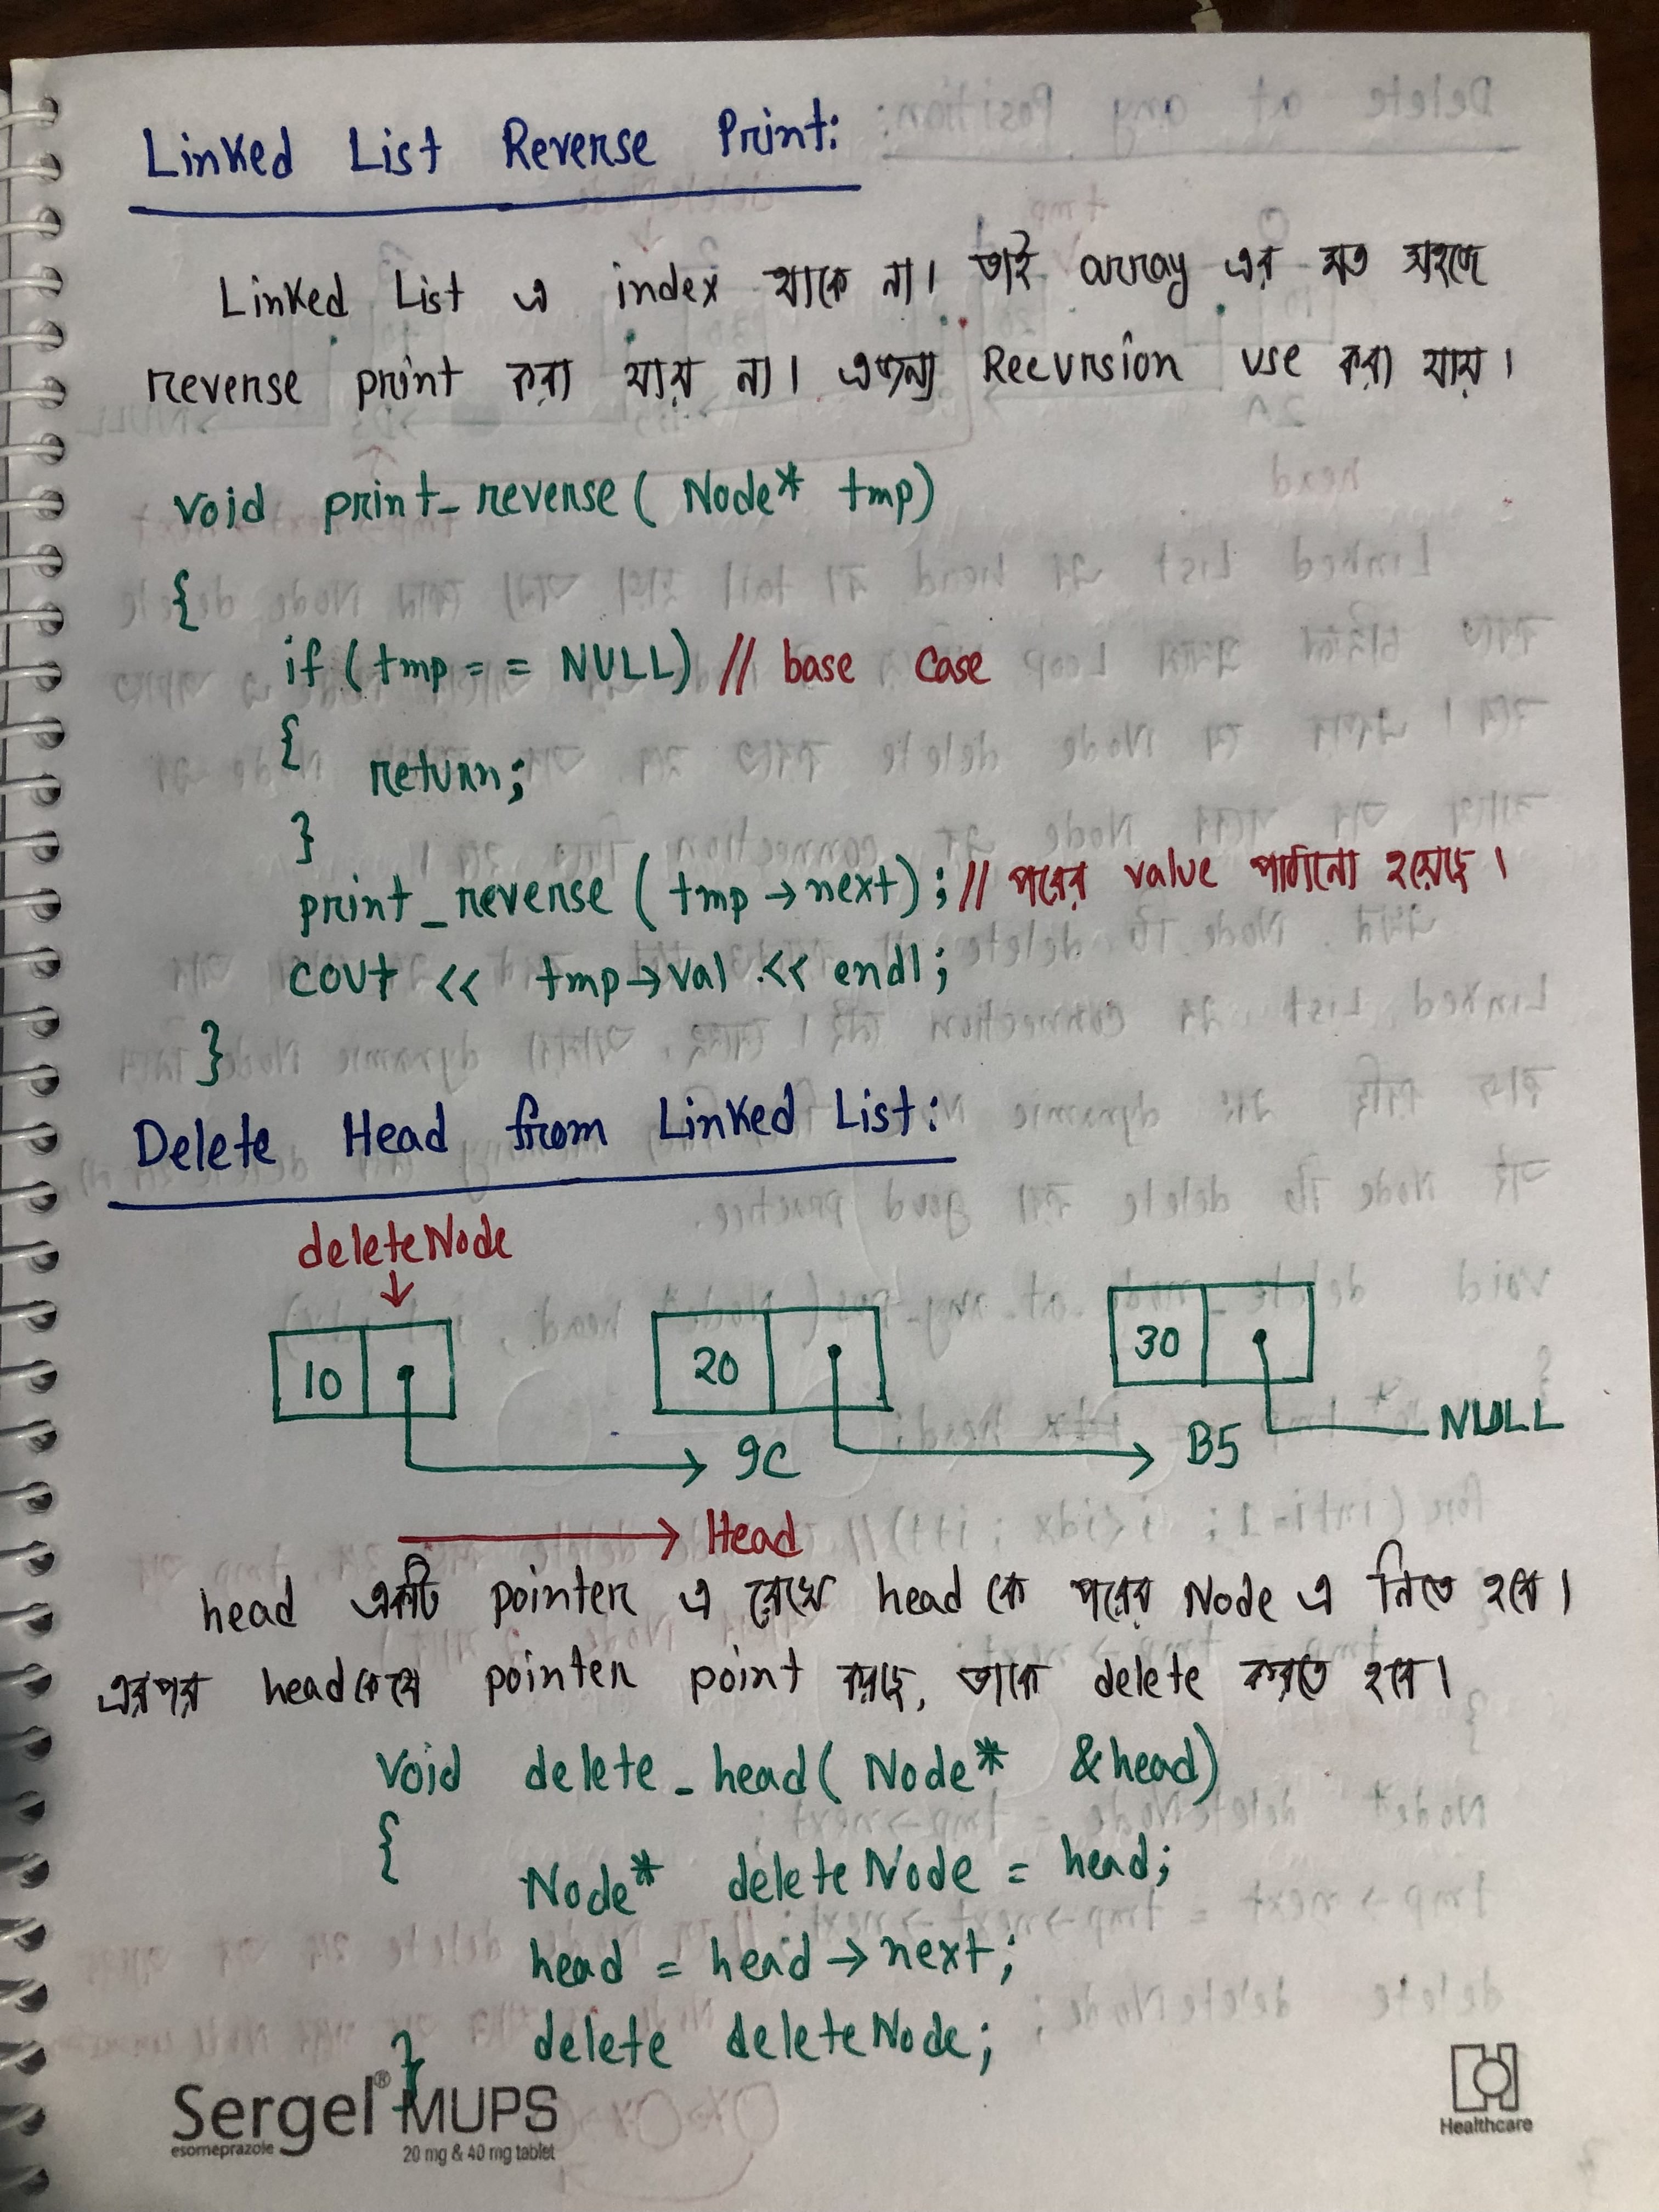 Linked List Reverse Print:
Linked List এ index থাকে না। তাই array এর মত সহজে
reverse print করা যায় না। এজন্য Recursion use করা যায়।
void print_reverse( Node* tmp)
{
if (tmp == NULL) // base case
{
return;
}
print_reverse (tmp→next); // পরের value পাঠানো হয়েছে।
cout << tmp→val << endl;
}
Delete Head from Linked List:
deleteNode
↓
10 20 30
9C B5 NULL
→ Head
head একটি pointer এ রেখে head কে পরের Node এ নিতে হবে।
এরপর head কে যে pointer point করছে, তাকে delete করতে হবে।
void delete_head( Node* &head)
{
Node* deleteNode = head;
head = head→next;
delete deleteNode;
}
Sergel® MUPS
esomeprazole 20 mg & 40 mg tablet
Healthcare